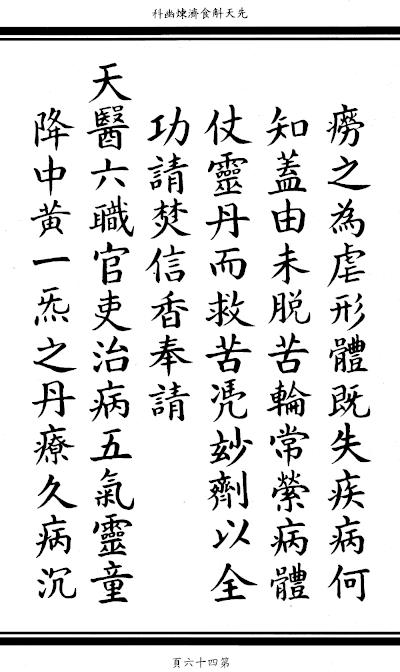 先天斛食濟煉幽科
癆之為虐形體既失疾病何
知蓋由未脱苦輪常縈病體
仗靈丹而救苦凴玅劑以全
功請焚信香奉請
天醫六職官吏治病五氣靈童
降中黃一炁之丹療久病沉
第四十六頁